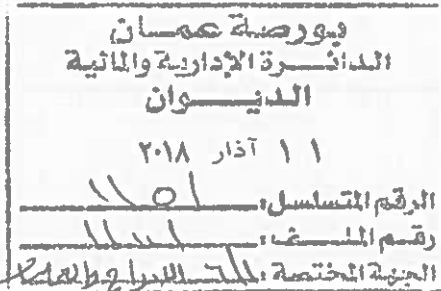 بورصة عمان
الدائرة الإدارية والمالية
الديوان
١١ آذار ٢٠١٨
الرقم المتسلسل:
رقم الملف:
الجهة المختصة: